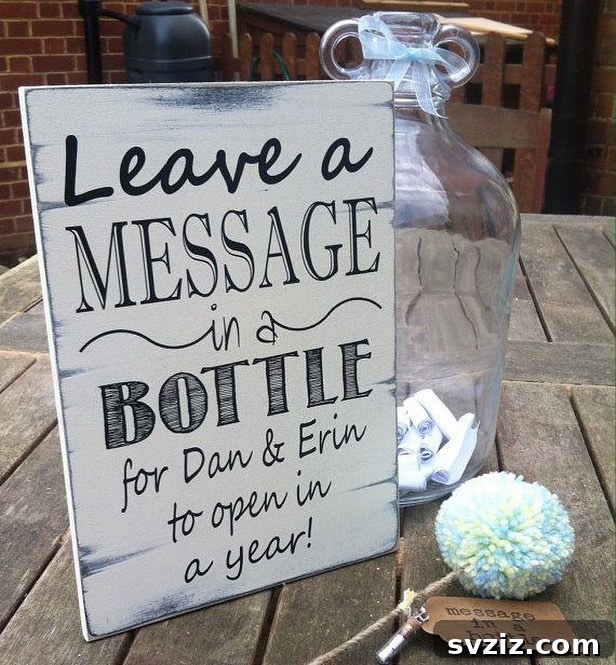 Leave a
MESSAGE
in a
BOTTLE
for Dan & Erin
to open in
a year!
message
in a
svziz.com